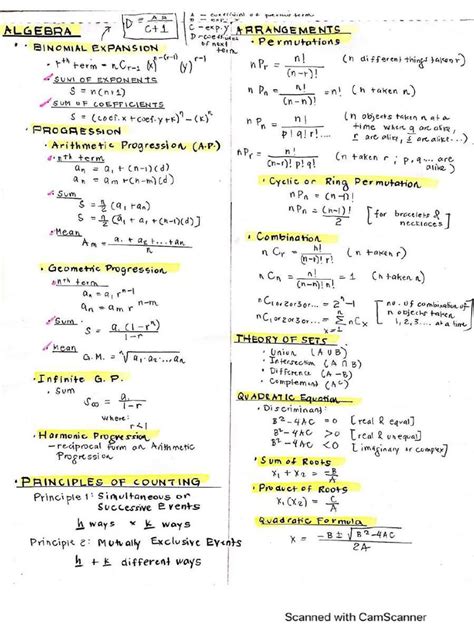 ALGEBRA
D = AB / C+1
A - coefficient of previous term
C - exp. y
D - coefficient of next term
• BINOMIAL EXPANSION
• rth term = nCr-1 (x)^(n-(r-1)) (y)^(r-1)
SUM OF EXPONENTS
S = n(n+1)
SUM OF COEFFICIENTS
S = (coef. x + coef. y + k)^n - (k)^n
• PROGRESSION
• Arithmetic Progression (A.P.)
nth term
an = a1 + (n-1)(d)
an = am + (n-m)(d)
Sum
S = n/2 (a1 + an)
S = n/2 [a1 + a1 + (n-1)(d)]
Mean
Am = a1 + a2 + ... + an / n
• Geometric Progression
nth term
an = a1 r^(n-1)
an = am r^(n-m)
Sum
S = a1 (1-r^n) / 1-r
Mean
G.M. = n√a1 · a2 ... an
• Infinite G.P.
• Sum
S∞ = a1 / 1-r
where:
r<1
• Harmonic Progression
- reciprocal form on Arithmetic
Progression
• PRINCIPLES OF COUNTING
Principle 1: Simultaneous or
Successive Events
h ways × k ways
Principle 2: Mutually Exclusive Events
h + k different ways
ARRANGEMENTS
• Permutations
nPr = n! / (n-r)! (n different things taken r)
nPn = n! / (n-n)! = n! (n taken n)
nPn = n! / p! q! r!... (n objects taken n at a
time where q are alike,
r are alike, s are alike...)
nPr = n! / (n-r)! p! q! (n taken r ; p, q ... are
alike)
• Cyclic or Ring Permutation
nPn = (n-1)!
nPn = (n-1)! / 2 [for bracelets &
necklaces]
• Combination
nCr = n! / (n-r)! r! (n taken r)
nCn = n! / (n-n)! n! = 1 (n taken n)
nC1 or 2 or 3... = 2^n - 1 [no. of combination of
nC1 or 2 or 3... = Σ nCx n objects taken
x=1 1, 2, 3... at a time]
THEORY OF SETS
• Union (A ∪ B)
• Intersection (A ∩ B)
• Difference (A - B)
• Complement (A^c)
QUADRATIC Equation
• Discriminant:
B² - 4AC = 0 [real & equal]
B² - 4AC > 0 [real & unequal]
B² - 4AC < 0 [imaginary or complex]
• Sum of Roots
x1 + x2 = -B/A
• Product of Roots
x1(x2) = C/A
Quadratic Formula
x = -B ± √B² - 4AC / 2A
Scanned with CamScanner